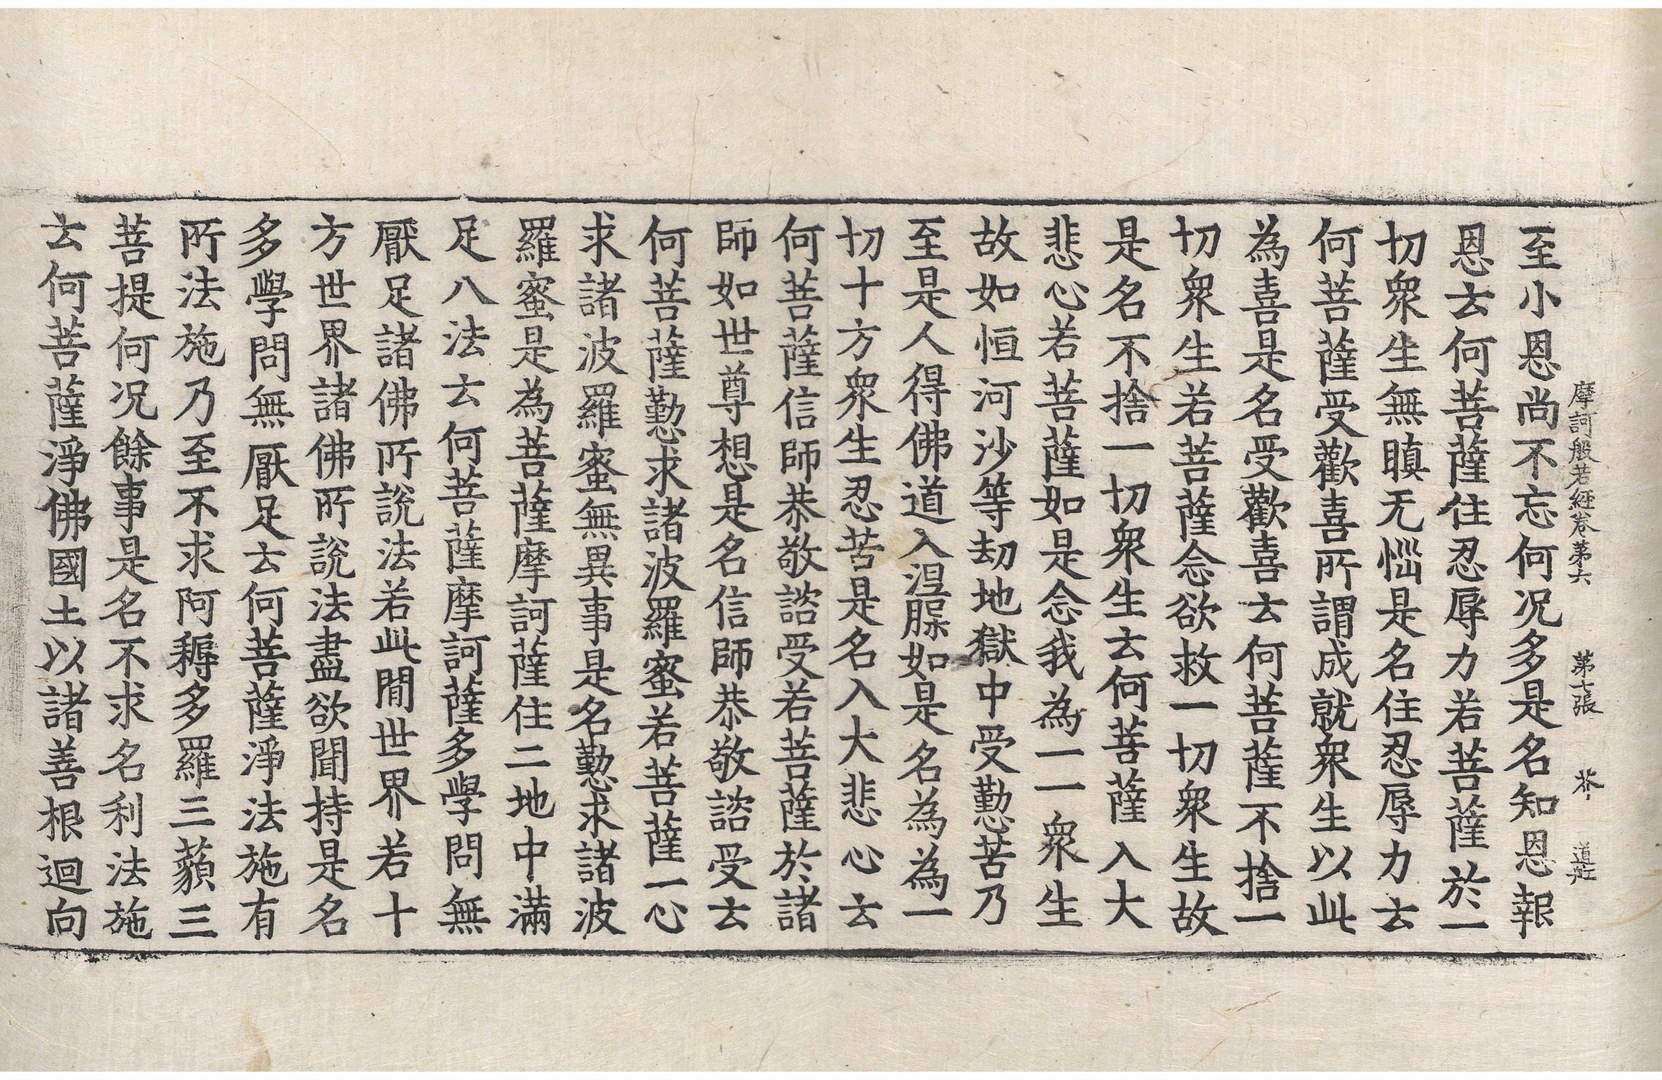 摩訶般若經卷第六 第七張 芥 道莊
至小恩尚不忘何況多是名知恩報
恩去何菩薩住忍辱力若菩薩於一
切衆生無瞋无惱是名住忍辱力去
何菩薩受歡喜所謂成就衆生以此
為喜是名受歡喜去何菩薩不捨一
切衆生若菩薩念欲救一切衆生故
是名不捨一切衆生去何菩薩入大
悲心若菩薩如是念我為一一衆生
故如恒河沙等劫地獄中受懃苦乃
至是人得佛道入涅槃如是名為為一
切十方衆生忍苦是名入大悲心去
何菩薩信師恭敬諮受若菩薩於諸
師如世尊想是名信師恭敬諮受去
何菩薩懃求諸波羅蜜若菩薩一心
求諸波羅蜜無異事是名懃求諸波
羅蜜是為菩薩摩訶薩住二地中滿
足八法去何菩薩摩訶薩多學問無
厭足諸佛所說法若此閒世界若十
方世界諸佛所說法盡欲聞持是名
多學問無厭足去何菩薩淨法施有
所法施乃至不求阿耨多羅三藐三
菩提何況餘事是名不求名利法施
去何菩薩淨佛國土以諸善根迴向